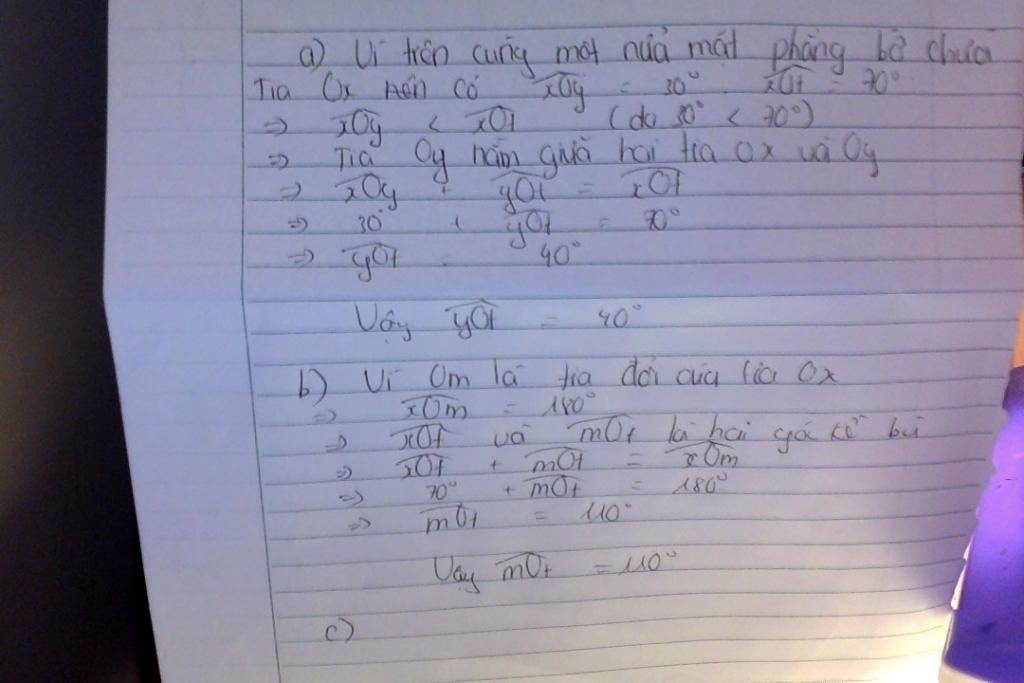 a) Vì trên cùng một nửa mặt phẳng bờ chứa
Tia Ox nên có xOy = 30° xOt = 70°
=> xOy < xOt (do 30° < 70°)
=> Tia Oy nằm giữa hai tia Ox và Oy
=> xOy + yOt = xOt
=> 30° + yOt = 70°
=> yOt = 40°
Vậy yOt = 40°
b) Vì Om là tia đối của tia Ox
=> xOm = 180°
=> xOt và mOt là hai góc kề bù
=> xOt + mOt = xOm
=> 70° + mOt = 180°
=> mOt = 110°
Vậy mOt = 110°
c)